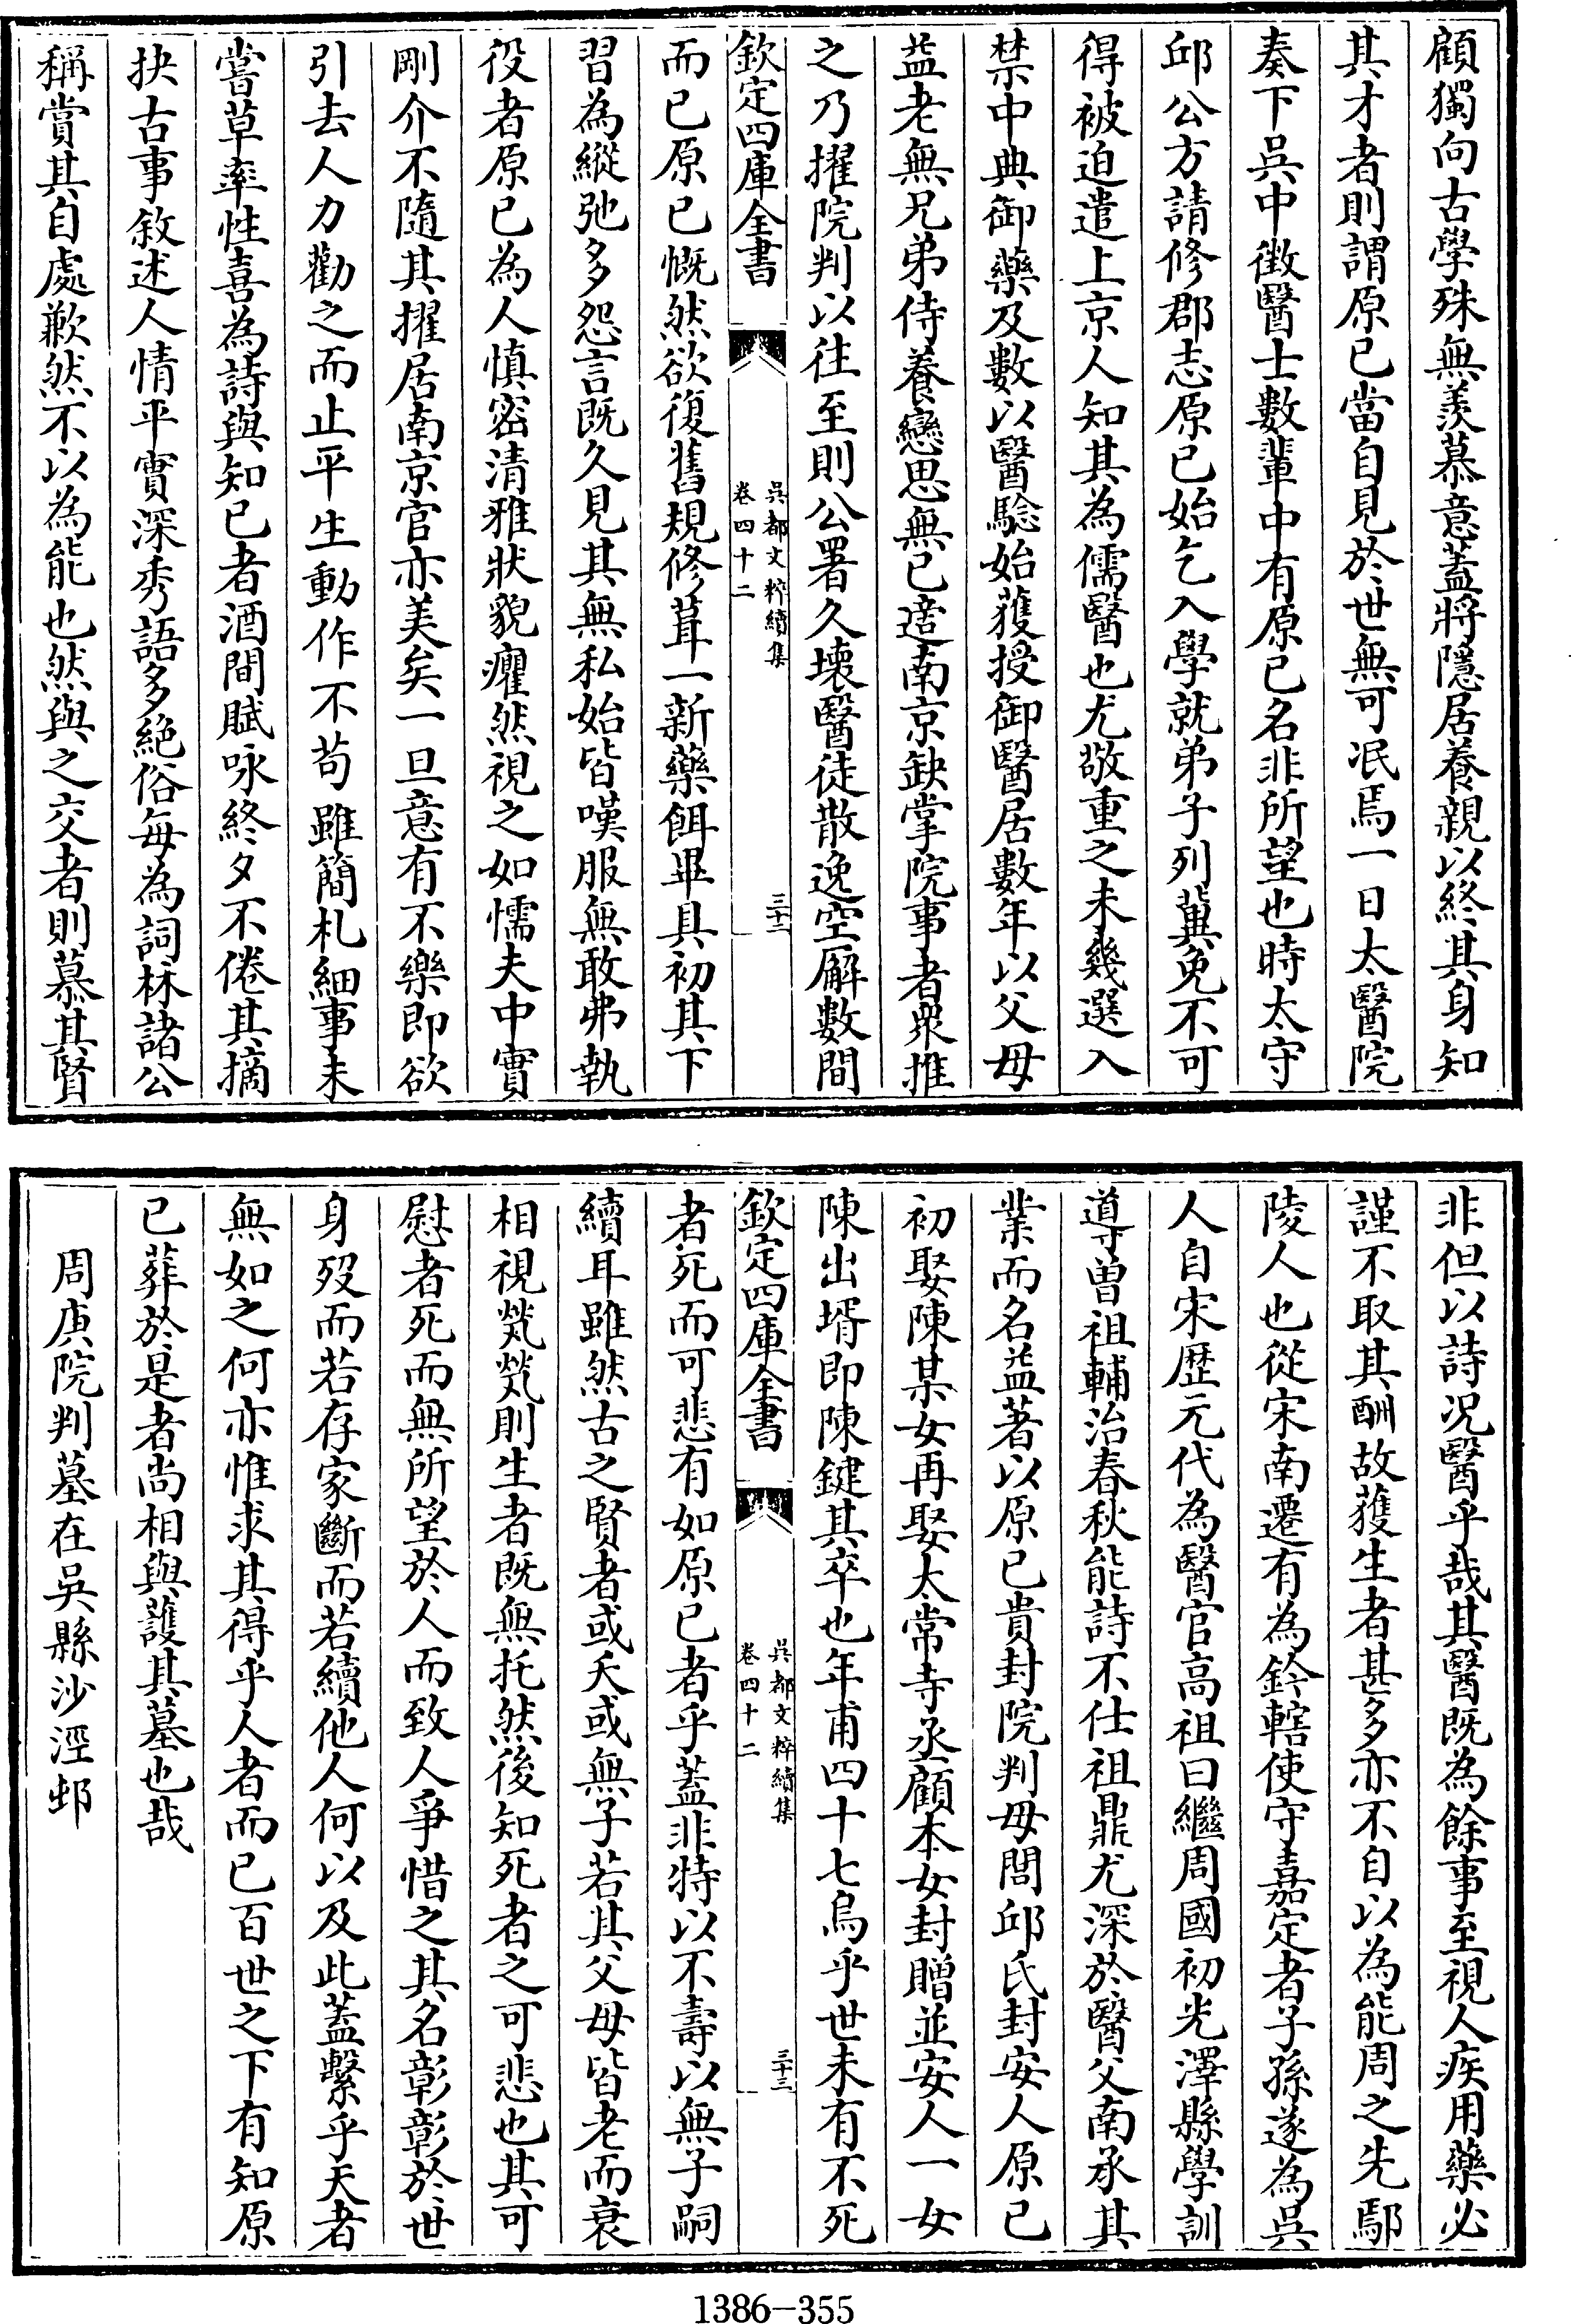 顧獨向古學殊無羨慕意蓋將隱居養親以終其身知
其才者則謂原已當自見於世無可泯焉一日太醫院
奏下吳中徴醫士數輩中有原已名非所望也時太守
邱公方請修郡志原已始乞入學就弟子列冀免不可
得被迫遣上京人知其為儒醫也尤敬重之未幾選入
禁中典御藥及數以醫騐始獲授御醫居數年以父母
益老無兄弟侍養戀思無已適南京缺掌院事者衆推
之乃擢院判以往至則公署久壊醫徒散逸空廨數間
欽定四庫全書
吳都文粹續集
卷四十二
三十二
而已原已慨然欲復舊規修葺一新藥餌畢具初其下
習為縱弛多怨言既久見其無私始皆嘆服無敢弗執
役者原已為人慎密清雅狀貌癯然視之如懦夫中實
剛介不隨其擢居南京官亦美矣一旦意有不樂即欲
引去人力勸之而止平生動作不苟雖簡札細事未
嘗草率性喜為詩與知已者酒間賦咏終夕不倦其摘
抉古事敘述人情平實深秀語多絶俗每為詞林諸公
稱賞其自處歉然不以為能也然與之交者則慕其賢
非但以詩况醫乎哉其醫既為餘事至視人疾用藥必
謹不取其酬故獲生者甚多亦不自以為能周之先鄢
陵人也從宋南遷有為鈐轄使守嘉定者子孫遂為吳
人自宋歴元代為醫官高祖曰繼周國初光澤縣學訓
導曽祖輔治春秋能詩不仕祖鼎尤深於醫父南承其
業而名益著以原已貴封院判母閻邱氏封安人原已
初娶陳某女再娶太常寺丞顧本女封贈並安人一女
陳出壻即陳鍵其卒也年甫四十七烏乎世未有不死
欽定四庫全書
吳都文粹續集
卷四十二
三十三
者死而可悲有如原已者乎蓋非特以不壽以無子嗣
續耳雖然古之賢者或夭或無子若其父母皆老而衰
相視煢煢則生者既無托然後知死者之可悲也其可
慰者死而無所望於人而致人爭惜之其名彰彰於世
身歿而若存家斷而若續他人何以及此蓋繫乎天者
無如之何亦惟求其得乎人者而已百世之下有知原
已葬於是者尚相與護其墓也哉
周庚院判墓在吳縣沙涇邨
1386-355